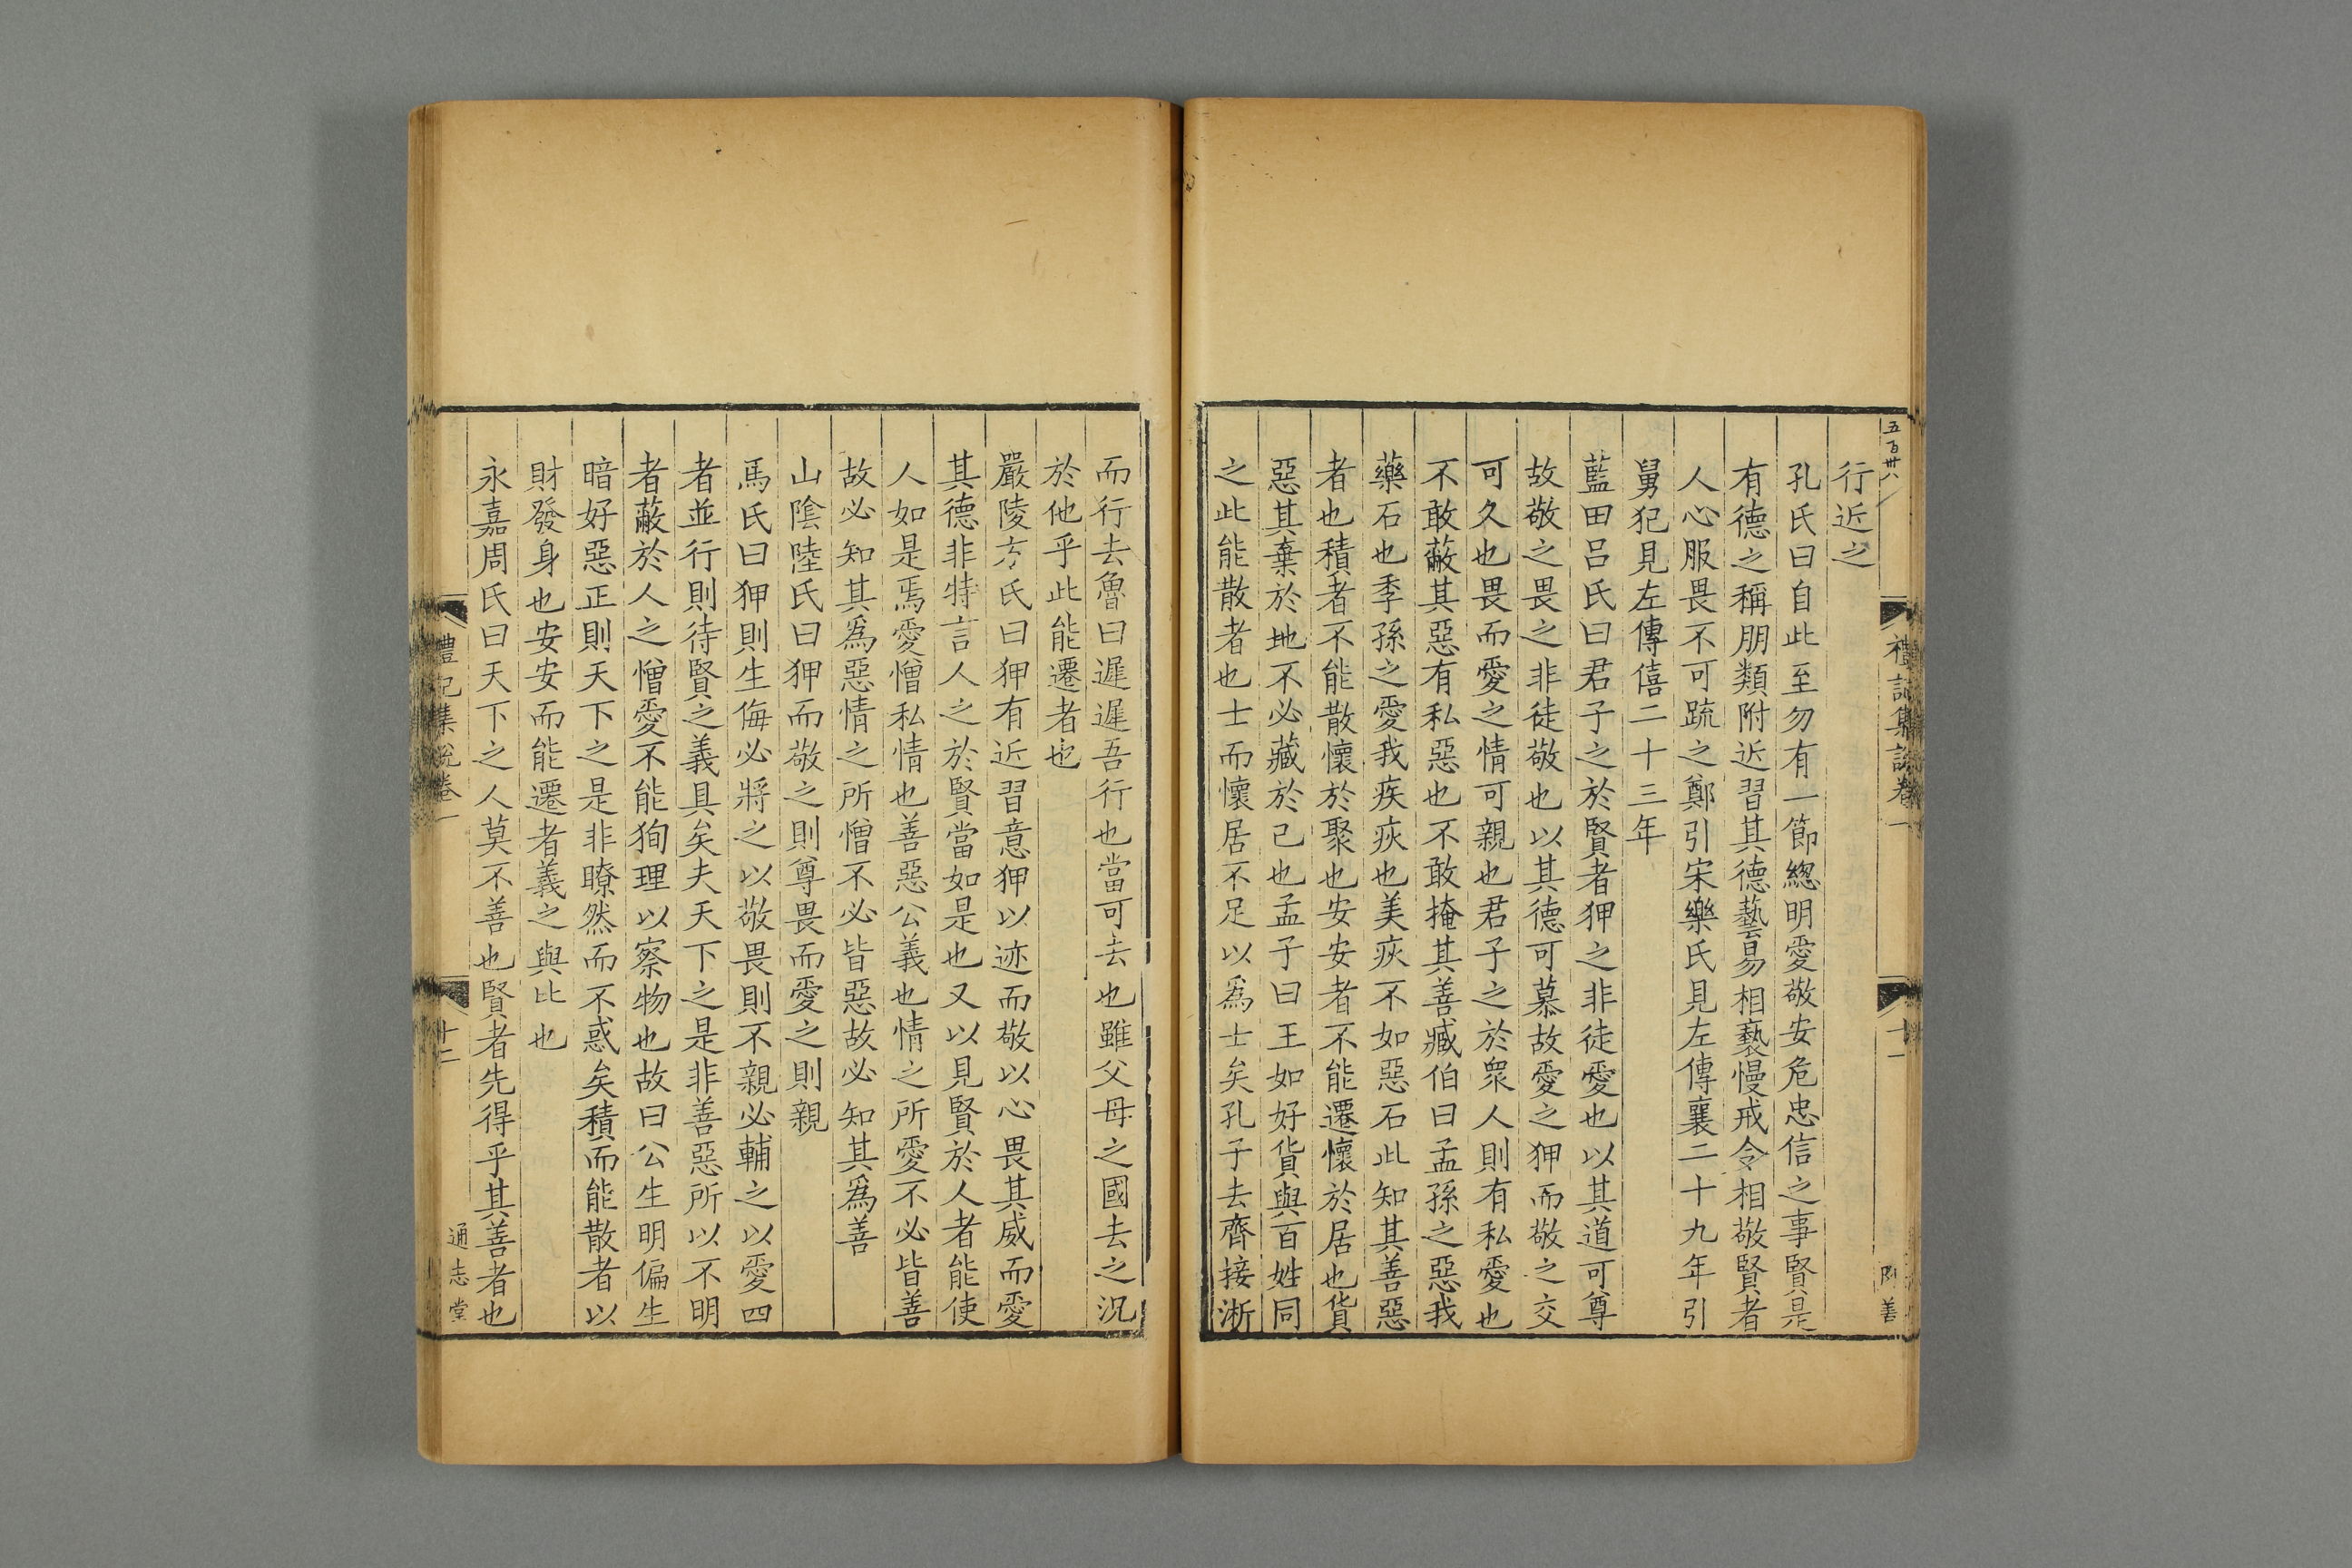 五百卅八
禮記集說卷一
十一
行近之
孔氏曰自此至勿有一節緫明愛敬安危忠信之事賢是
有德之稱朋類附近習其德藝易相褻慢戒令相敬賢者
人心服畏不可踈之鄭引宋樂氏見左傳襄二十九年引
舅犯見左傳僖二十三年
藍田吕氏曰君子之於賢者狎之非徒愛也以其道可尊
故敬之畏之非徒敬也以其德可慕故愛之狎而敬之交
可久也畏而愛之情可親也君子之於衆人則有私愛也
不敢蔽其惡有私惡也不敢掩其善臧伯曰孟孫之惡我
藥石也季孫之愛我疾疢也美疢不如惡石此知其善惡
者也積者不能散懷於聚也安安者不能遷懷於居也貨
惡其棄於地不必藏於己也孟子曰王如好貨與百姓同
之此能散者也士而懷居不足以爲士矣孔子去齊接淅
而行去魯曰遲遲吾行也當可去也雖父母之國去之況
於他乎此能遷者也
嚴陵方氏曰狎有近習意狎以迹而敬以心畏其威而愛
其德非特言人之於賢當如是也又以見賢於人者能使
人如是焉愛憎私情也善惡公義也情之所愛不必皆善
故必知其爲惡情之所憎不必皆惡故必知其爲善
山陰陸氏曰狎而敬之則尊畏而愛之則親
馬氏曰狎則生侮必將之以敬畏則不親必輔之以愛四
者並行則待賢之義具矣夫天下之是非善惡所以不明
者蔽於人之憎愛不能狥理以察物也故曰公生明偏生
暗好惡正則天下之是非瞭然而不惑矣積而能散者以
財發身也安安而能遷者義之與比也
永嘉周氏曰天下之人莫不善也賢者先得乎其善者也
禮記集說卷一
十二
通志堂